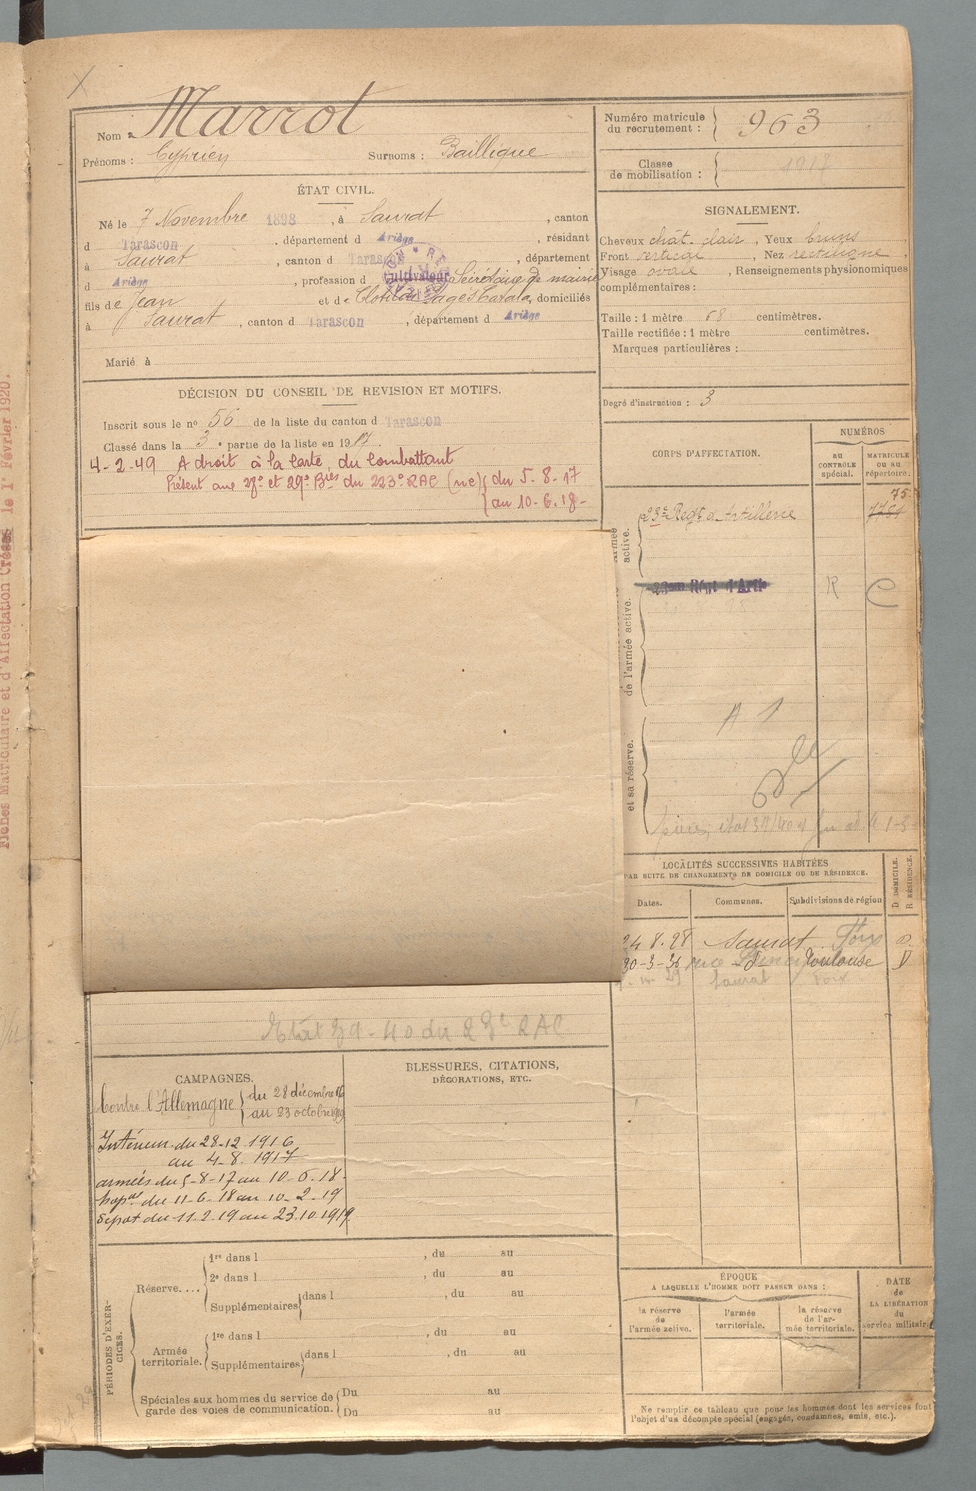 Nom : Marrot
Prénoms : Cyprien Surnoms : Baillique
Numéro matricule du recrutement : 963
Classe de mobilisation : 1917
ÉTAT CIVIL.
Né le 7 Novembre 1898, à Saurat, canton
d Tarascon, département d Ariège, résidant
à Saurat, canton d Tarascon, département
d Ariège, profession d Cultivateur Secrétaire de mairie
fils de Jean et de Clotilde, domiciliés
à Saurat, canton d Tarascon, département d Ariège
Marié à
SIGNALEMENT.
Cheveux chât. clair, Yeux bruns
Front vertical, Nez rectiligne.
Visage ovale, Renseignements physionomiques
complémentaires :
Taille : 1 mètre 68 centimètres.
Taille rectifiée : 1 mètre centimètres.
Marques particulières :
Degré d'instruction : 3
DÉCISION DU CONSEIL DE REVISION ET MOTIFS.
Inscrit sous le nº 56 de la liste du canton d Tarascon
Classé dans la 3e partie de la liste en 1917.
4-2-49 A droit à la Carte du Combattant
Présent aux et 29e Bies du 223e RAC (nc) du 5.8.17
au 10-6.18-
CORPS D'AFFECTATION.
NUMÉROS
AU CONTRÔLE spécial.
MATRICULE ou au répertoire.
Armée active.
23e Regt d'Artillerie
75
23eme Régt d'Artie
R
de l'armée active.
A 1
et sa réserve.
LOCALITÉS SUCCESSIVES HABITÉES
PAR SUITE DE CHANGEMENTS DE DOMICILE OU DE RÉSIDENCE.
Dates.
Communes.
Subdivisions de région
D DOMICILE.
R RÉSIDENCE.
24.8.28 Saurat Foix D.
30-3-36 rue Toulouse D
Saurat Foix
Etat 39-40 du 23e RAC
CAMPAGNES.
Contre l'Allemagne du 28 décembre 16
au 23 octobre 1919
Intérieur du 28-12 1916
au 4-8. 1917
armées du 5-8-17 au 10-6-18-
hopal du 11-6-18 au 10-2-19
Dépot du 11-2-19 au 23.10.1919
BLESSURES, CITATIONS,
DÉCORATIONS, ETC.
PÉRIODES D'EXERCICES.
Réserve....
1re dans l , du au
2e dans l , du au
Supplémentaires dans l , du au
Armée territoriale.
1re dans l , du au
Supplémentaires dans l , du au
Spéciales aux hommes du service de
garde des voies de communication.
Du au
Du au
ÉPOQUE
A LAQUELLE L'HOMME DOIT PASSER DANS :
la réserve de l'armée active.
l'armée territoriale.
la réserve de l'armée territoriale.
DATE de LA LIBÉRATION du service militaire
Ne remplir ce tableau que pour les hommes dont les services font
l'objet d'un décompte spécial (engagés, condamnés, omis, etc.).
Fiches Matriculaire et d'Affectation Créées le 1r Février 1920.